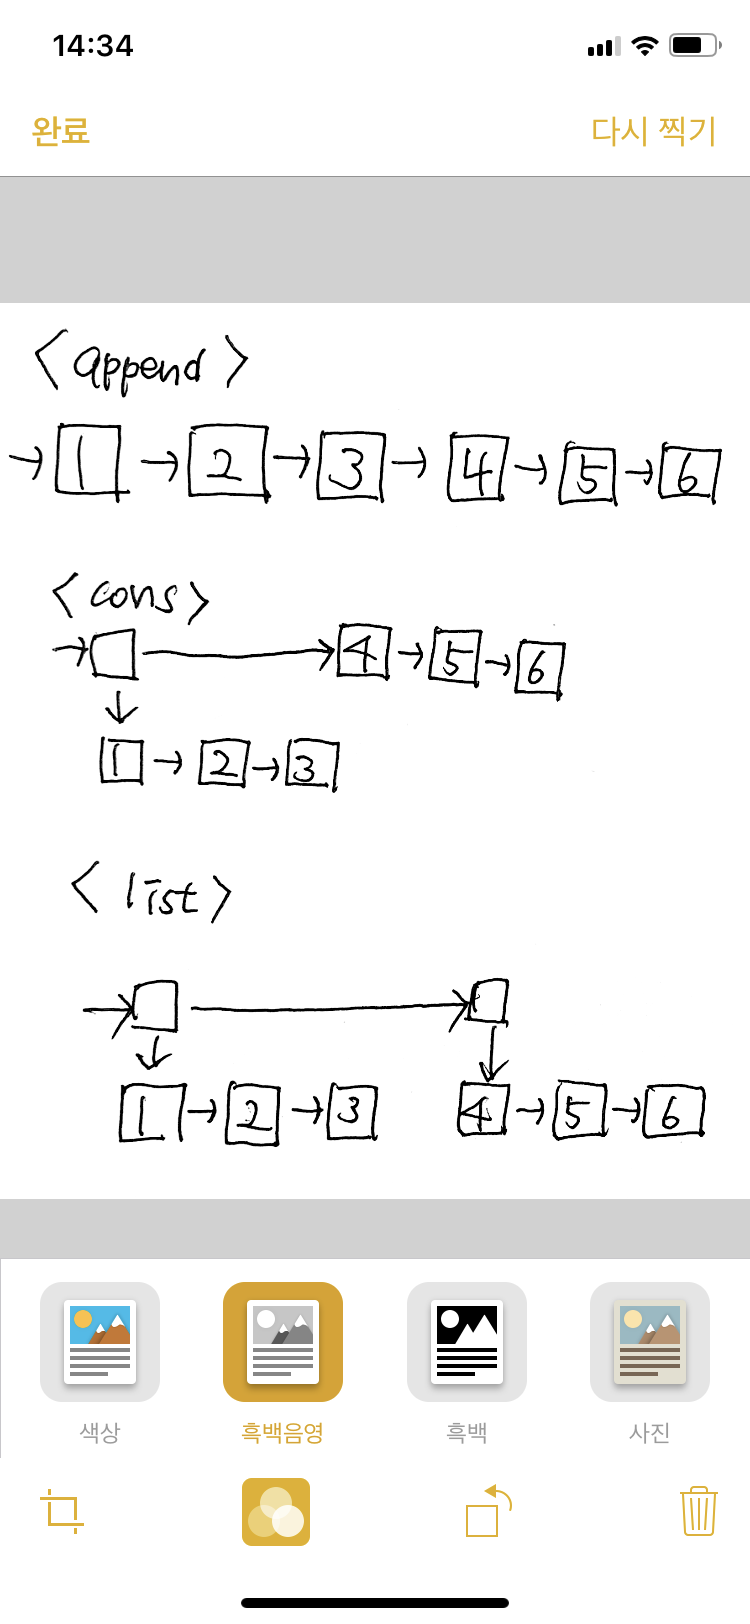 14:34
완료 다시 찍기
<append>
→ 1 → 2 → 3 → 4 → 5 → 6
<cons>
→ → 4 → 5 → 6
↓
1 → 2 → 3
<list>
→ →
↓ ↓
1 → 2 → 3 4 → 5 → 6
색상 흑백음영 흑백 사진